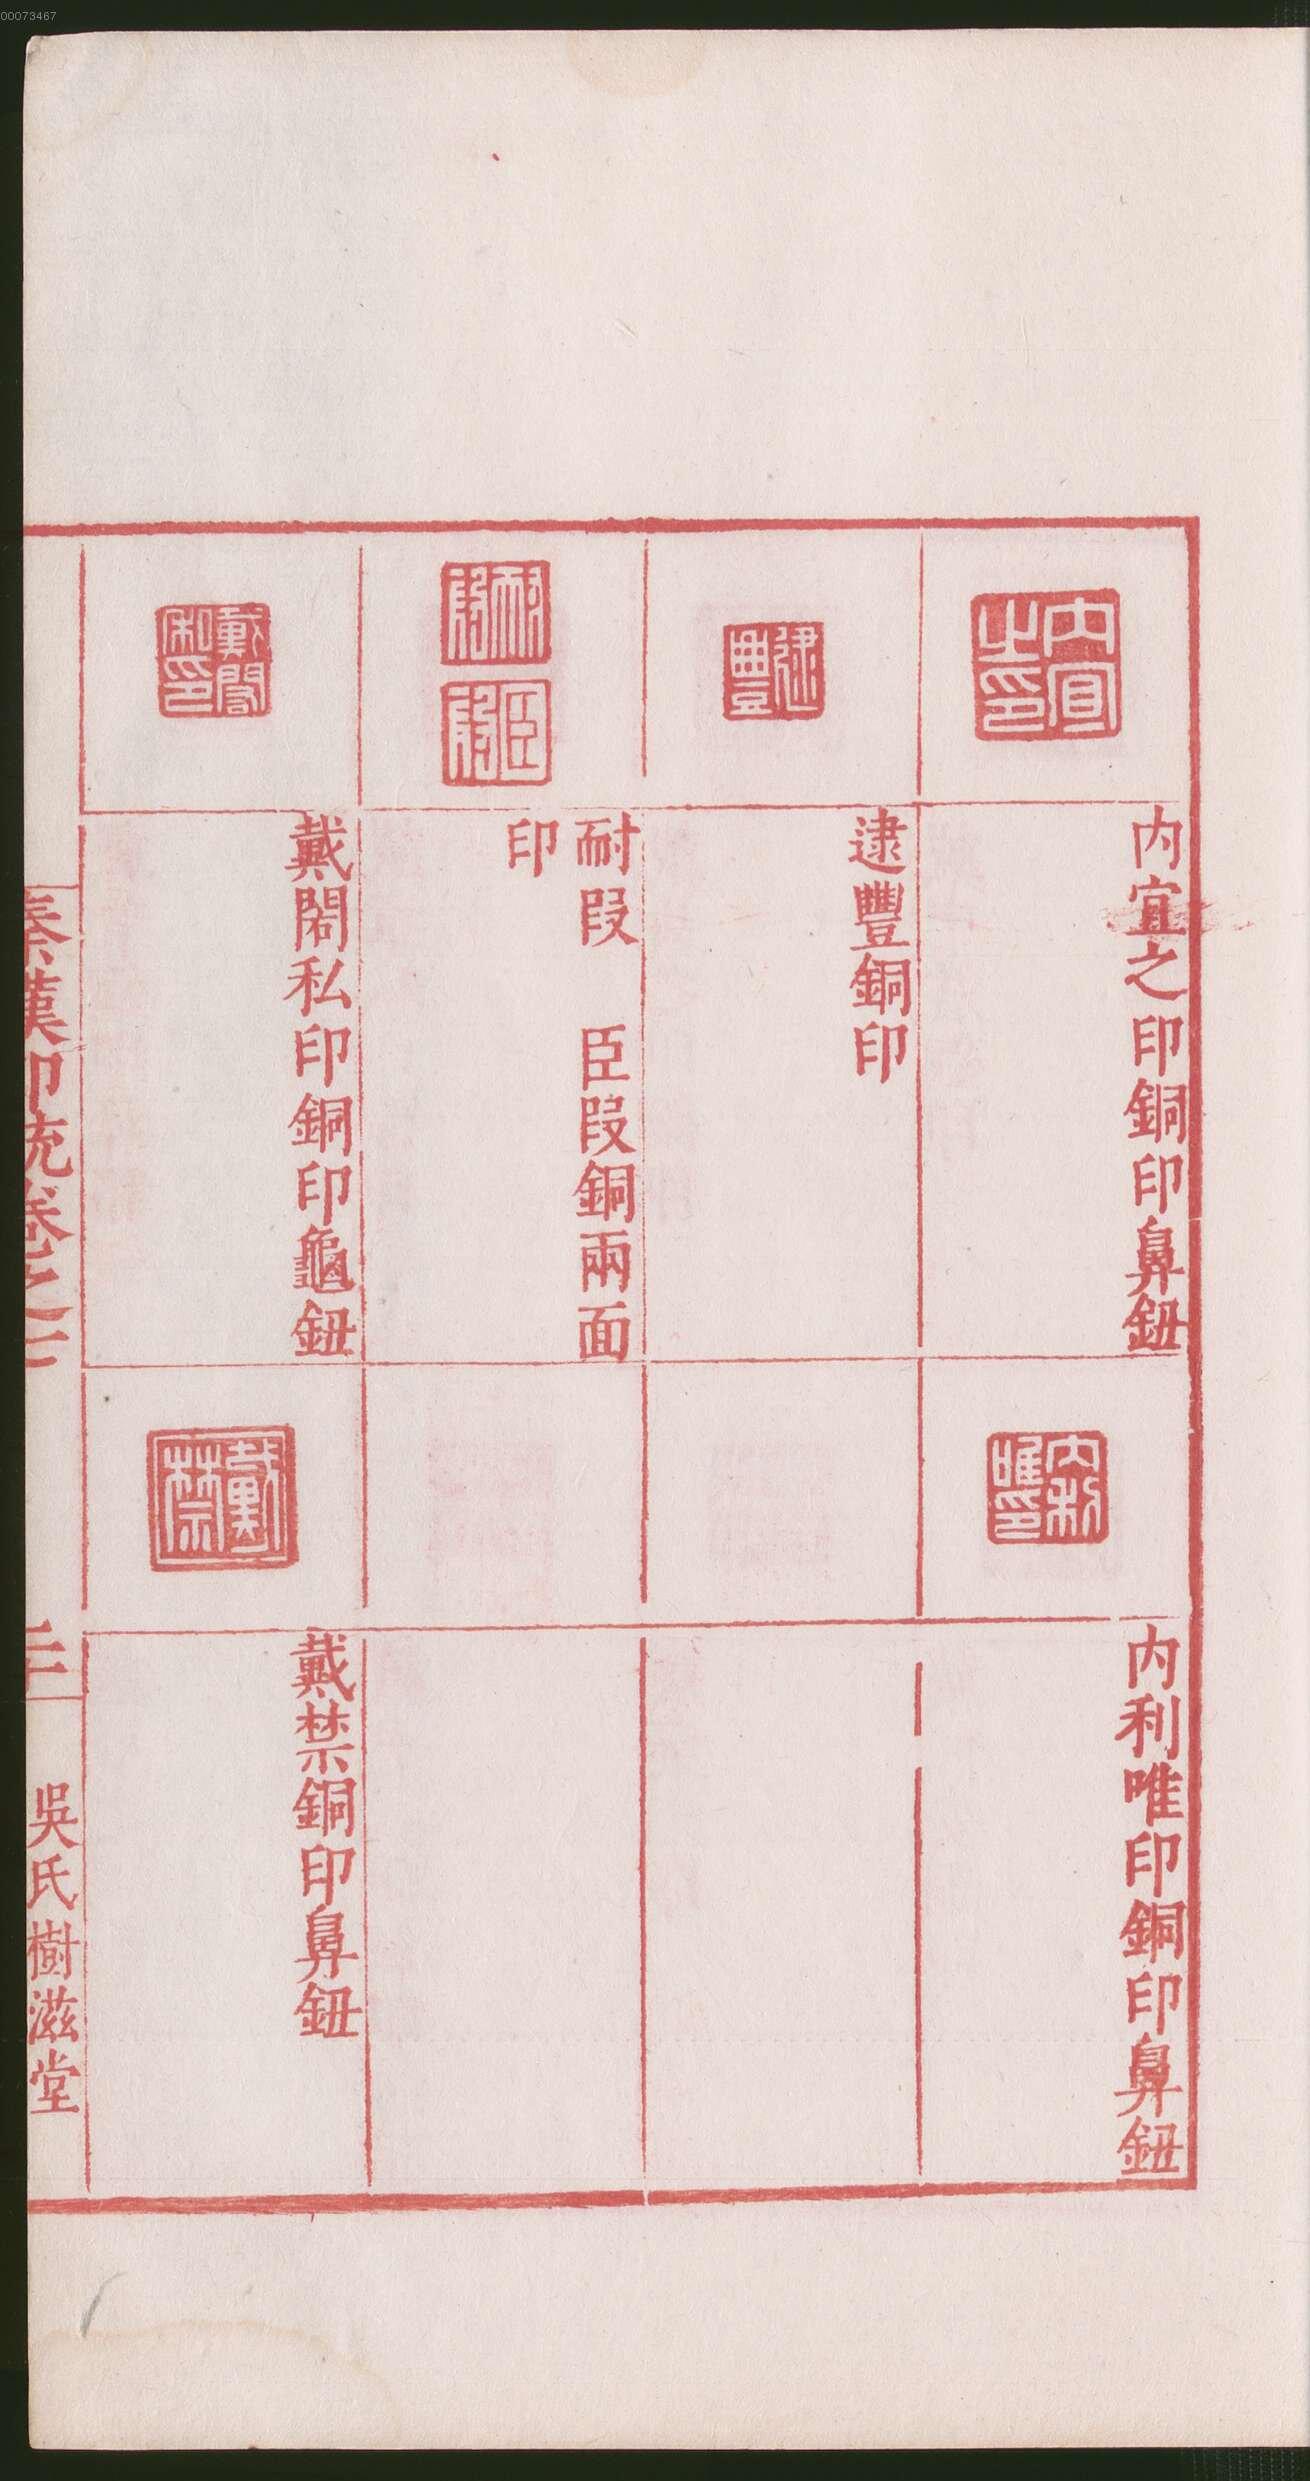 00073467
内宜之印
内宜之印銅印鼻鈕
内利唯印
内利唯印銅印鼻鈕
逮豐
逮豐銅印
耐段
臣段
耐段　臣段銅兩面
印
戴閎私印
戴閎私印銅印龜鈕
戴禁
戴禁銅印鼻鈕
秦漢印統卷之七
吳氏樹滋堂